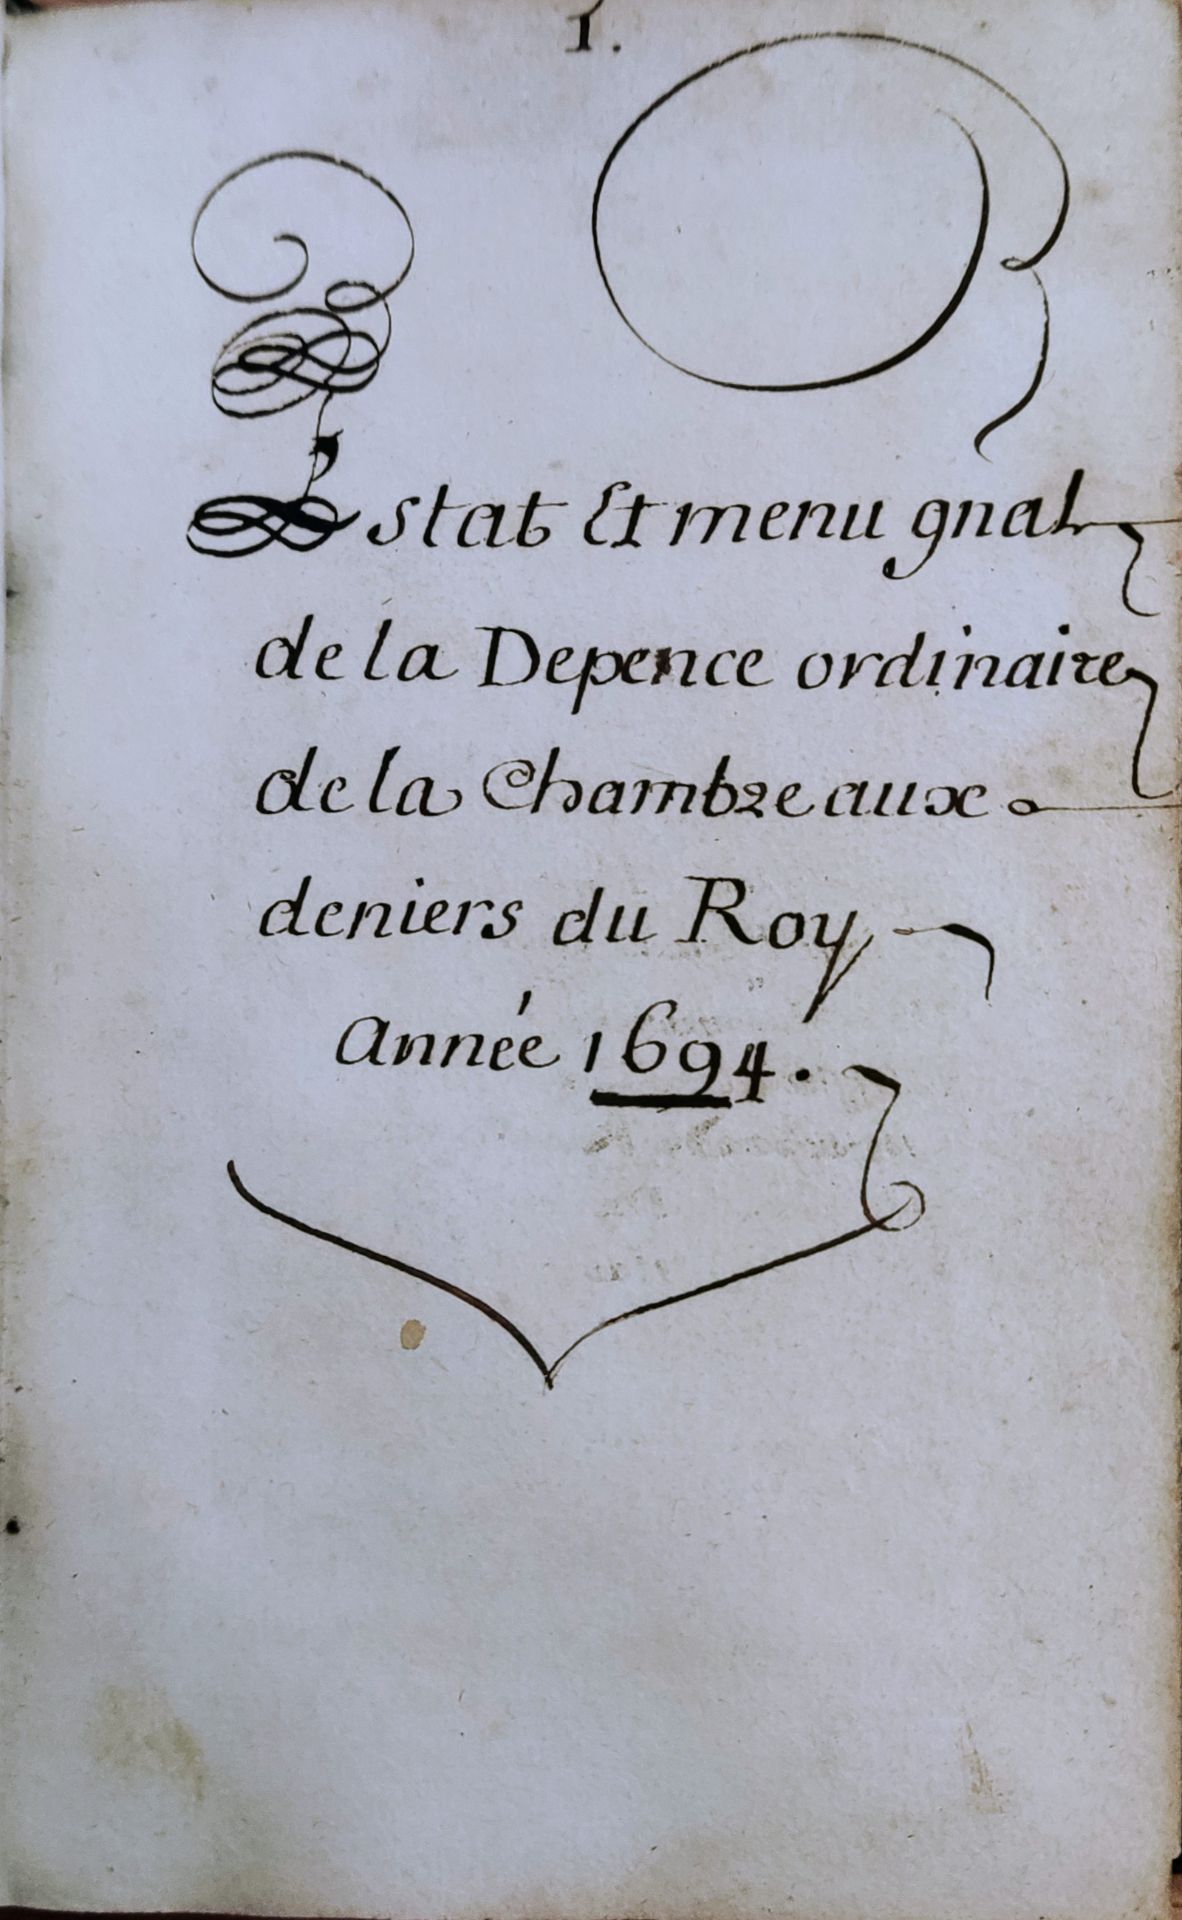 1.
Estat Et menu gnal
de la Depence ordinaire
de la Chambre aux
deniers du Roy
Année 1694.